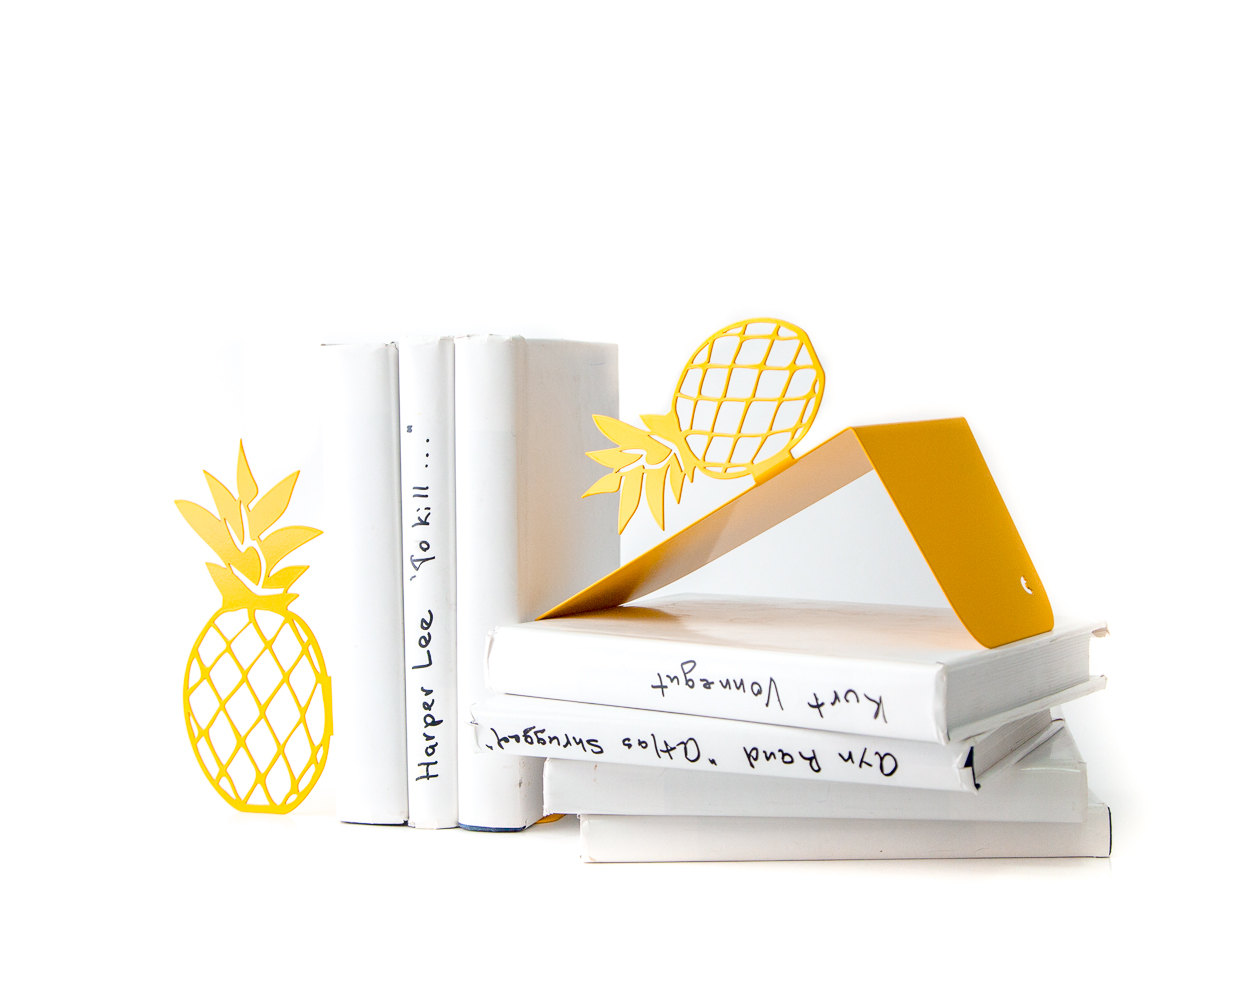 Harper Lee "To kill ..."
Kurt Vonnegut
Ayn Rand "Atlas Shrugged"